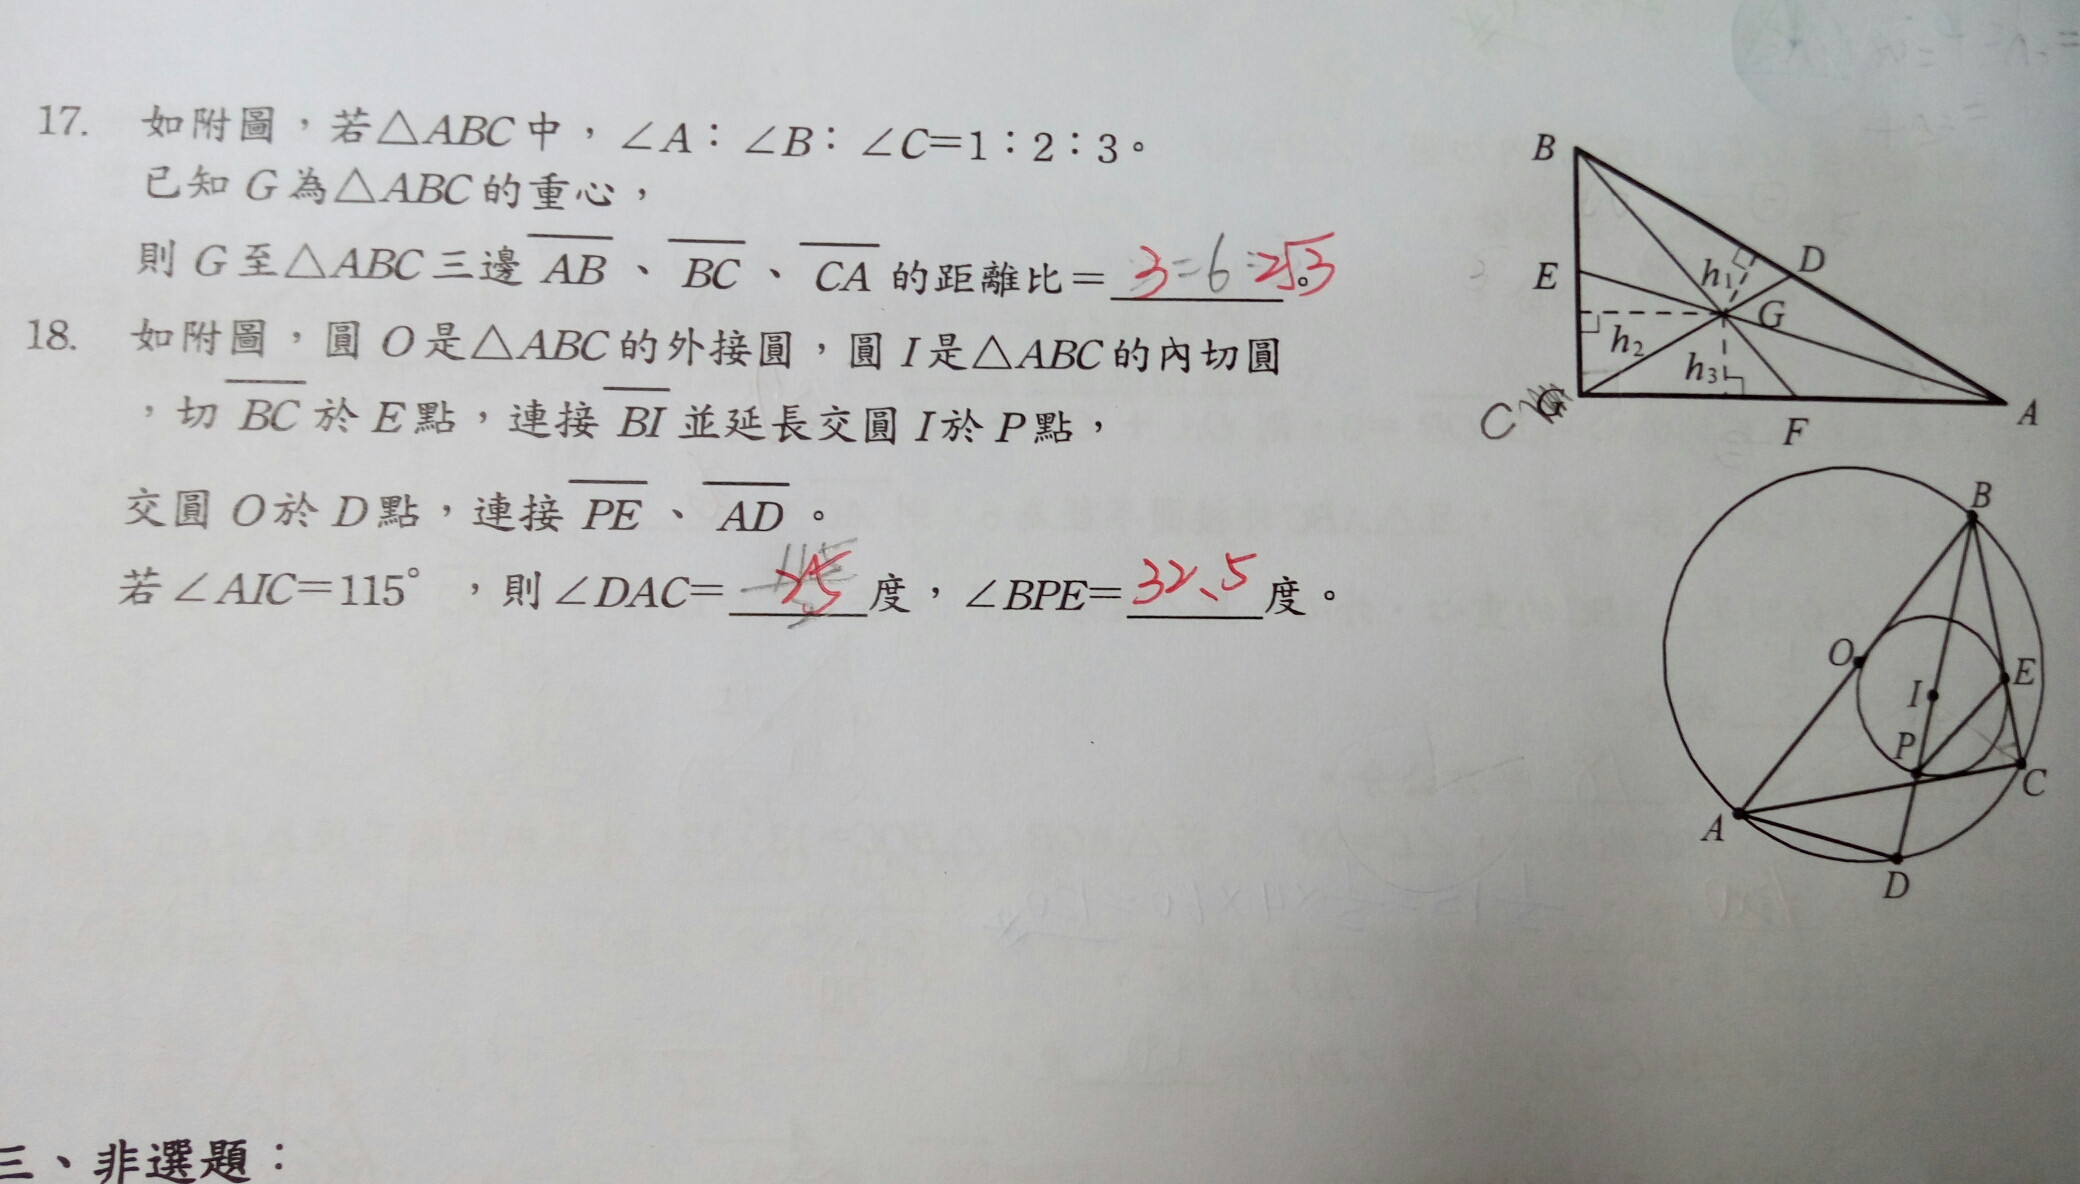 17. 如附圖，若△ABC中，∠A：∠B：∠C=1：2：3。
已知G為△ABC的重心，
則G至△ABC三邊AB、BC、CA的距離比=3=6=2√3。
18. 如附圖，圓O是△ABC的外接圓，圓I是△ABC的內切圓
，切BC於E點，連接BI並延長交圓I於P點，
交圓O於D點，連接PE、AD。
若∠AIC=115°，則∠DAC=25度，∠BPE=32.5度。
三、非選題：
B
E
D
h1
G
h2
h3
C
F
A
B
O
I
E
P
C
A
D